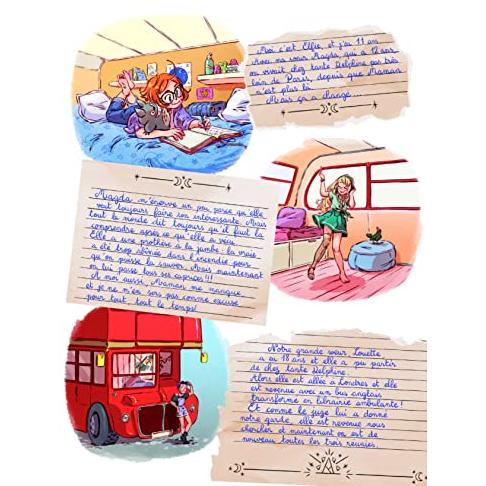 Moi c'est Elfie, et j'ai 11 ans
Avec ma sœur Magda, qui a 12 ans
on vivait chez tante Delphine pas très
loin de Paris, depuis que Maman
n'est plus là.
Mais ça a changé...
Magda m'énerve un peu parce qu'elle
veut toujours faire son intéressante. Mais
tout le monde dit toujours qu'il faut la
comprendre après ce qu'elle a vécu.
Elle a une prothèse à la jambe : la vraie
a été trop abîmée dans l'incendie pour
qu'on puisse la sauver. Mais maintenant
on lui passe tous ses caprices !!!
A moi aussi, Maman me manque
et je ne m'en sers pas comme excuse
pour tout, tout le temps !
Notre grande sœur Louette
a 18 ans et elle a pu partir
de chez tante Delphine.
Alors elle est allée à Londres et elle
est revenue avec un bus anglais
transformé en librairie ambulante !
Et comme le juge lui a donné
notre garde, elle est revenue nous
chercher et maintenant on est de
nouveau toutes les trois réunies.